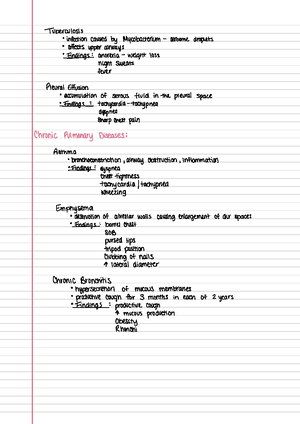 Tuberculosis
• infection caused by Mycobacterium - airborne droplets
• affects upper airways
• Findings: anorexia - weight loss
night sweats
fever
Pleural Effusion
• accumulation of serous fluid in the pleural space
• Findings: tachycardia - tachypnea
dyspnea
sharp chest pain
Chronic Pulmonary Diseases:
Asthma
• bronchoconstriction, airway obstruction, inflammation
• Findings: dyspnea
chest tightness
tachycardia / tachypnea
wheezing
Emphysema
• destruction of alveolar walls causing enlargement of air spaces
• Findings: barrel chest
SOB
pursed lips
tripod position
clubbing of nails
↑ lateral diameter
Chronic Bronchitis
• hypersecretion of mucous membranes
• productive cough for 3 months in each of 2 years
• Findings: productive cough
↑ mucous production
Obesity
Rhonchi